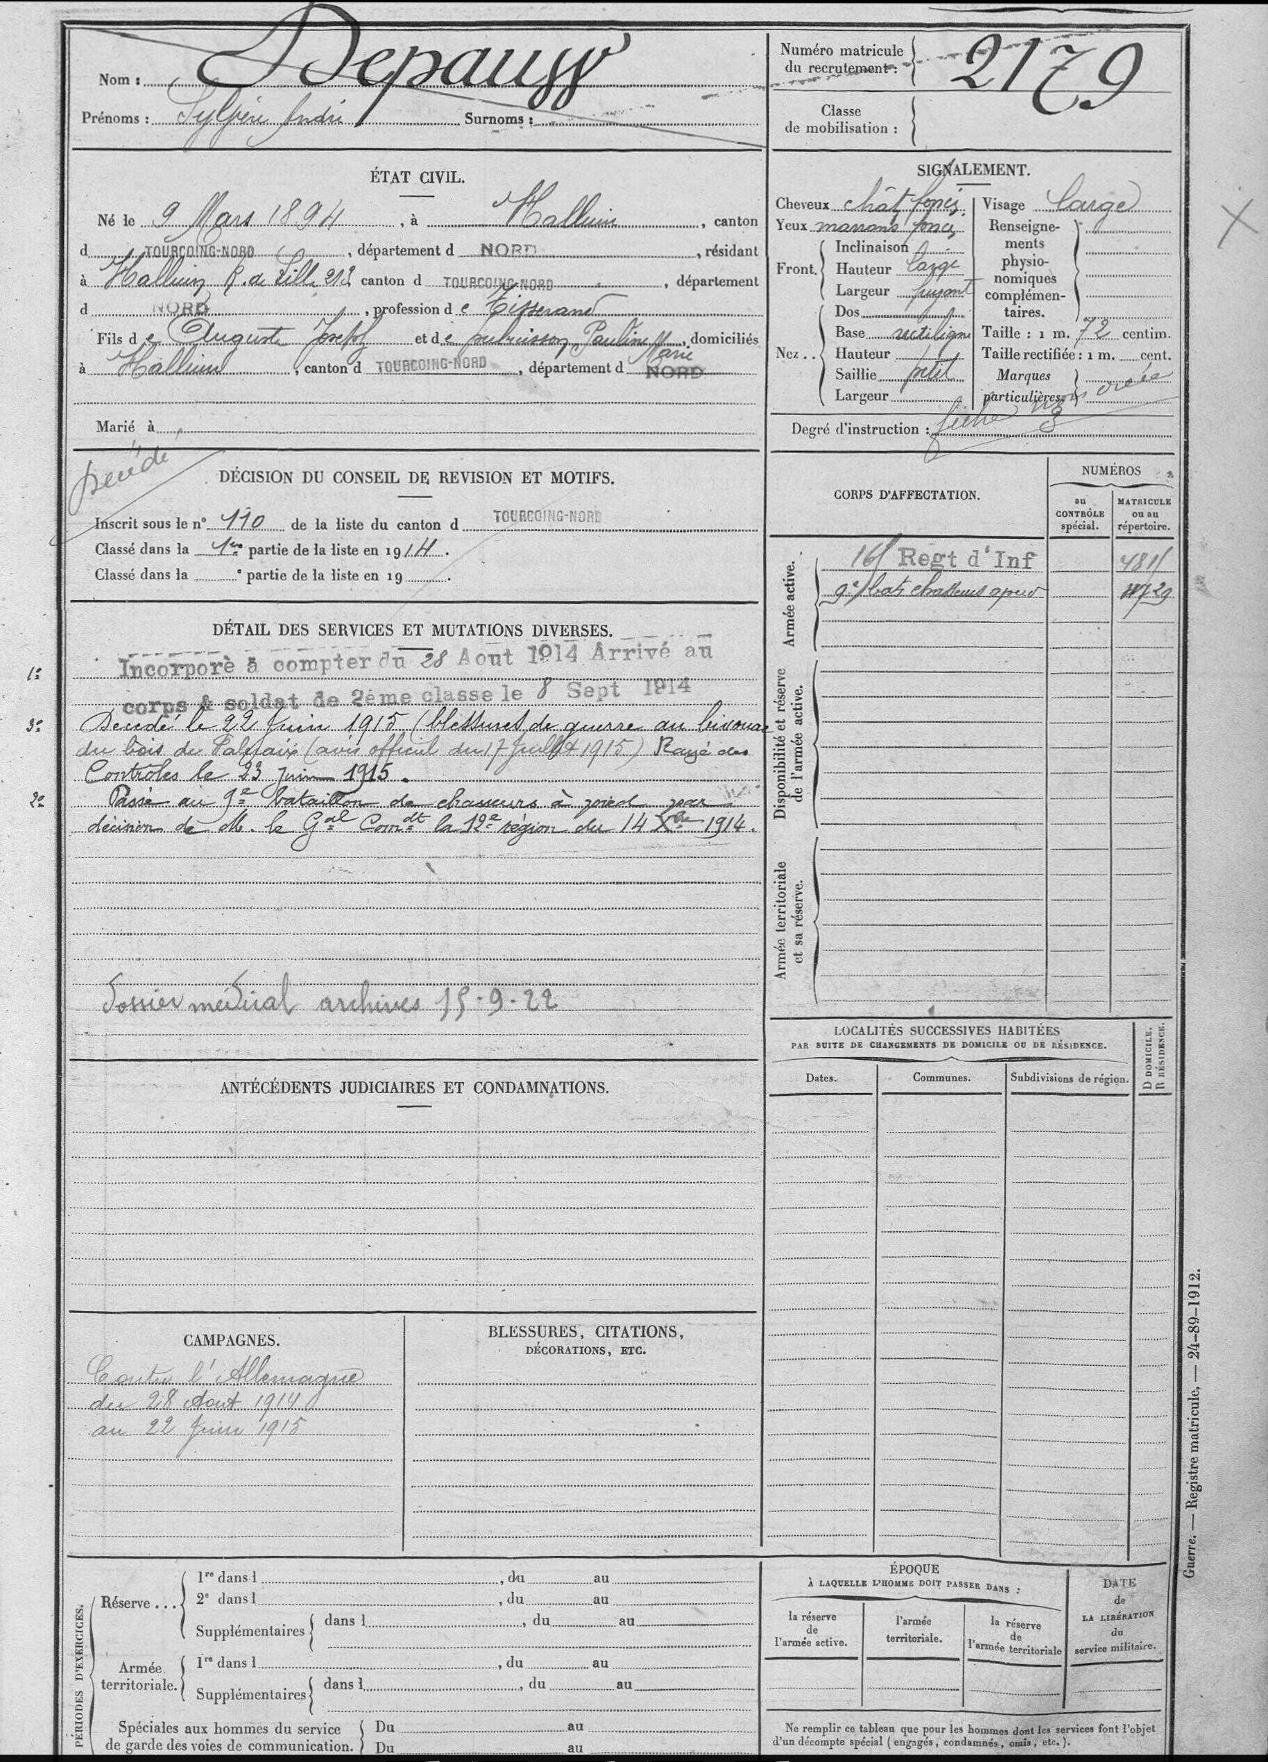 Nom : Depauw
Prénoms : André Surnoms :
Numéro matricule
du recrutement : 2179
Classe
de mobilisation :
ÉTAT CIVIL.
Né le 9 Mars 1894, à Halluin, canton
d TOURCOING-NORD, département d NORD, résidant
à Halluin R. de Lille 212 canton d TOURCOING-NORD, département
d NORD, profession de Tisserand
Fils de Auguste Joseph et de Pauline Marie, domiciliés
à Halluin, canton d TOURCOING-NORD, département d NORD
Marié à
SIGNALEMENT.
Cheveux chât foncés Visage large
Yeux marrons foncés
Front. Inclinaison
Hauteur large
Largeur fuyant
Nez .. Dos
Base rectiligne
Hauteur
Saillie petit
Largeur
Renseigne-
ments
physio-
nomiques
complémen-
taires.
Taille : 1 m. 72 centim.
Taille rectifiée : 1 m. cent.
Marques
particulières
Degré d'instruction : 3
fiche non créée
Décédé
DÉCISION DU CONSEIL DE REVISION ET MOTIFS.
Inscrit sous le n° 110 de la liste du canton d TOURCOING-NORD
Classé dans la 1re partie de la liste en 1914.
Classé dans la e partie de la liste en 19 .
CORPS D'AFFECTATION.
NUMÉROS
au
CONTRÔLE
spécial.
MATRICULE
ou au
répertoire.
Armée active.
16 Regt d'Inf
9e bat. chasseurs à pied
Disponibilité et réserve
de l'armée active.
Armée territoriale
et sa réserve.
DÉTAIL DES SERVICES ET MUTATIONS DIVERSES.
1° Incorporé à compter du 28 Aout 1914 Arrivé au
corps & soldat de 2éme classe le 8 Sept 1914
3° Décédé le 22 Juin 1915 (blessures de guerre au bivouac
du bois de (avis officiel du 17 Juillet 1915) Rayé des
Contrôles le 23 Juin 1915.
2° Passé au 9e bataillon de chasseurs à pied par
décision de M. le Gal Comdt la 12e région du 14 Xbre 1914.
Dossier médical archives 15-9-22
LOCALITÉS SUCCESSIVES HABITÉES
PAR SUITE DE CHANGEMENTS DE DOMICILE OU DE RÉSIDENCE.
Dates.
Communes.
Subdivisions de région.
D DOMICILE.
R RÉSIDENCE.
ANTÉCÉDENTS JUDICIAIRES ET CONDAMNATIONS.
CAMPAGNES.
Contre l'Allemagne
du 28 Aout 1914
au 22 Juin 1915
BLESSURES, CITATIONS,
DÉCORATIONS, ETC.
PÉRIODES D'EXERCICES.
Réserve ...
1re dans l , du au
2e dans l , du au
Supplémentaires dans l , du au
Armée
territoriale.
1re dans l , du au
Supplémentaires dans l , du au
Spéciales aux hommes du service
de garde des voies de communication.
Du au
Du au
ÉPOQUE
À LAQUELLE L'HOMME DOIT PASSER DANS :
la réserve
de
l'armée active.
l'armée
territoriale.
la réserve
de
l'armée territoriale
DATE
de
LA LIBÉRATION
du
service militaire.
Ne remplir ce tableau que pour les hommes dont les services font l'objet
d'un décompte spécial (engagés, condamnés, omis, etc.).
Guerre. — Registre matricule, — 24-89-1912.